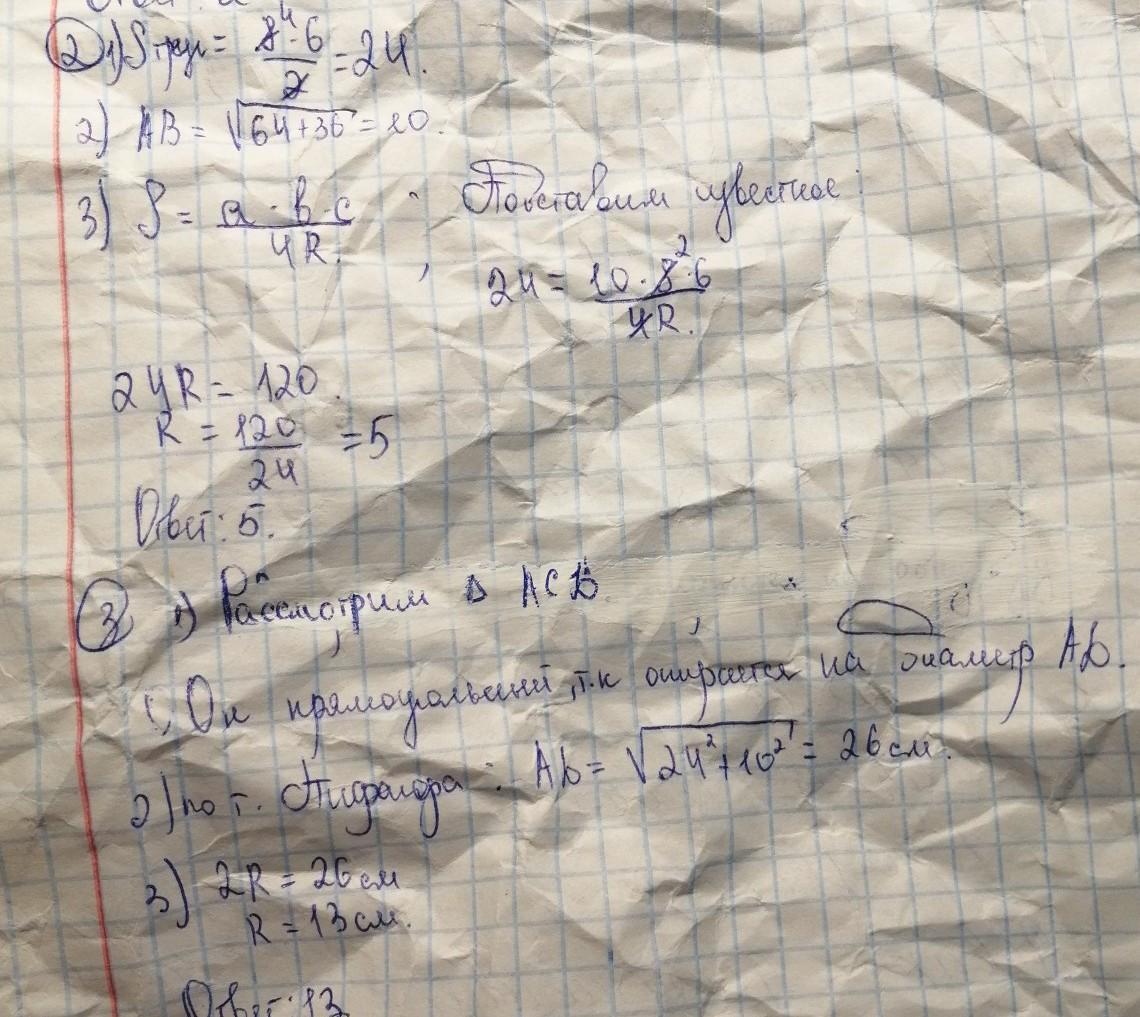 ② 1) Sтреуг = 8⁴·6/2 = 24.
2) AB = √64+36 = 10.
3) S = a·b·c/4R. Подставим известное:
24 = 10·8²·6/4R.
24R = 120.
R = 120/24 = 5
Ответ: 5.
③ 1) Рассмотрим Δ ACB
Он прямоугольный, т.к опирается на диаметр AB.
2) по т. Пифагора: AB = √24²+10² = 26см.
3) 2R = 26см
R = 13см.
Ответ: 13